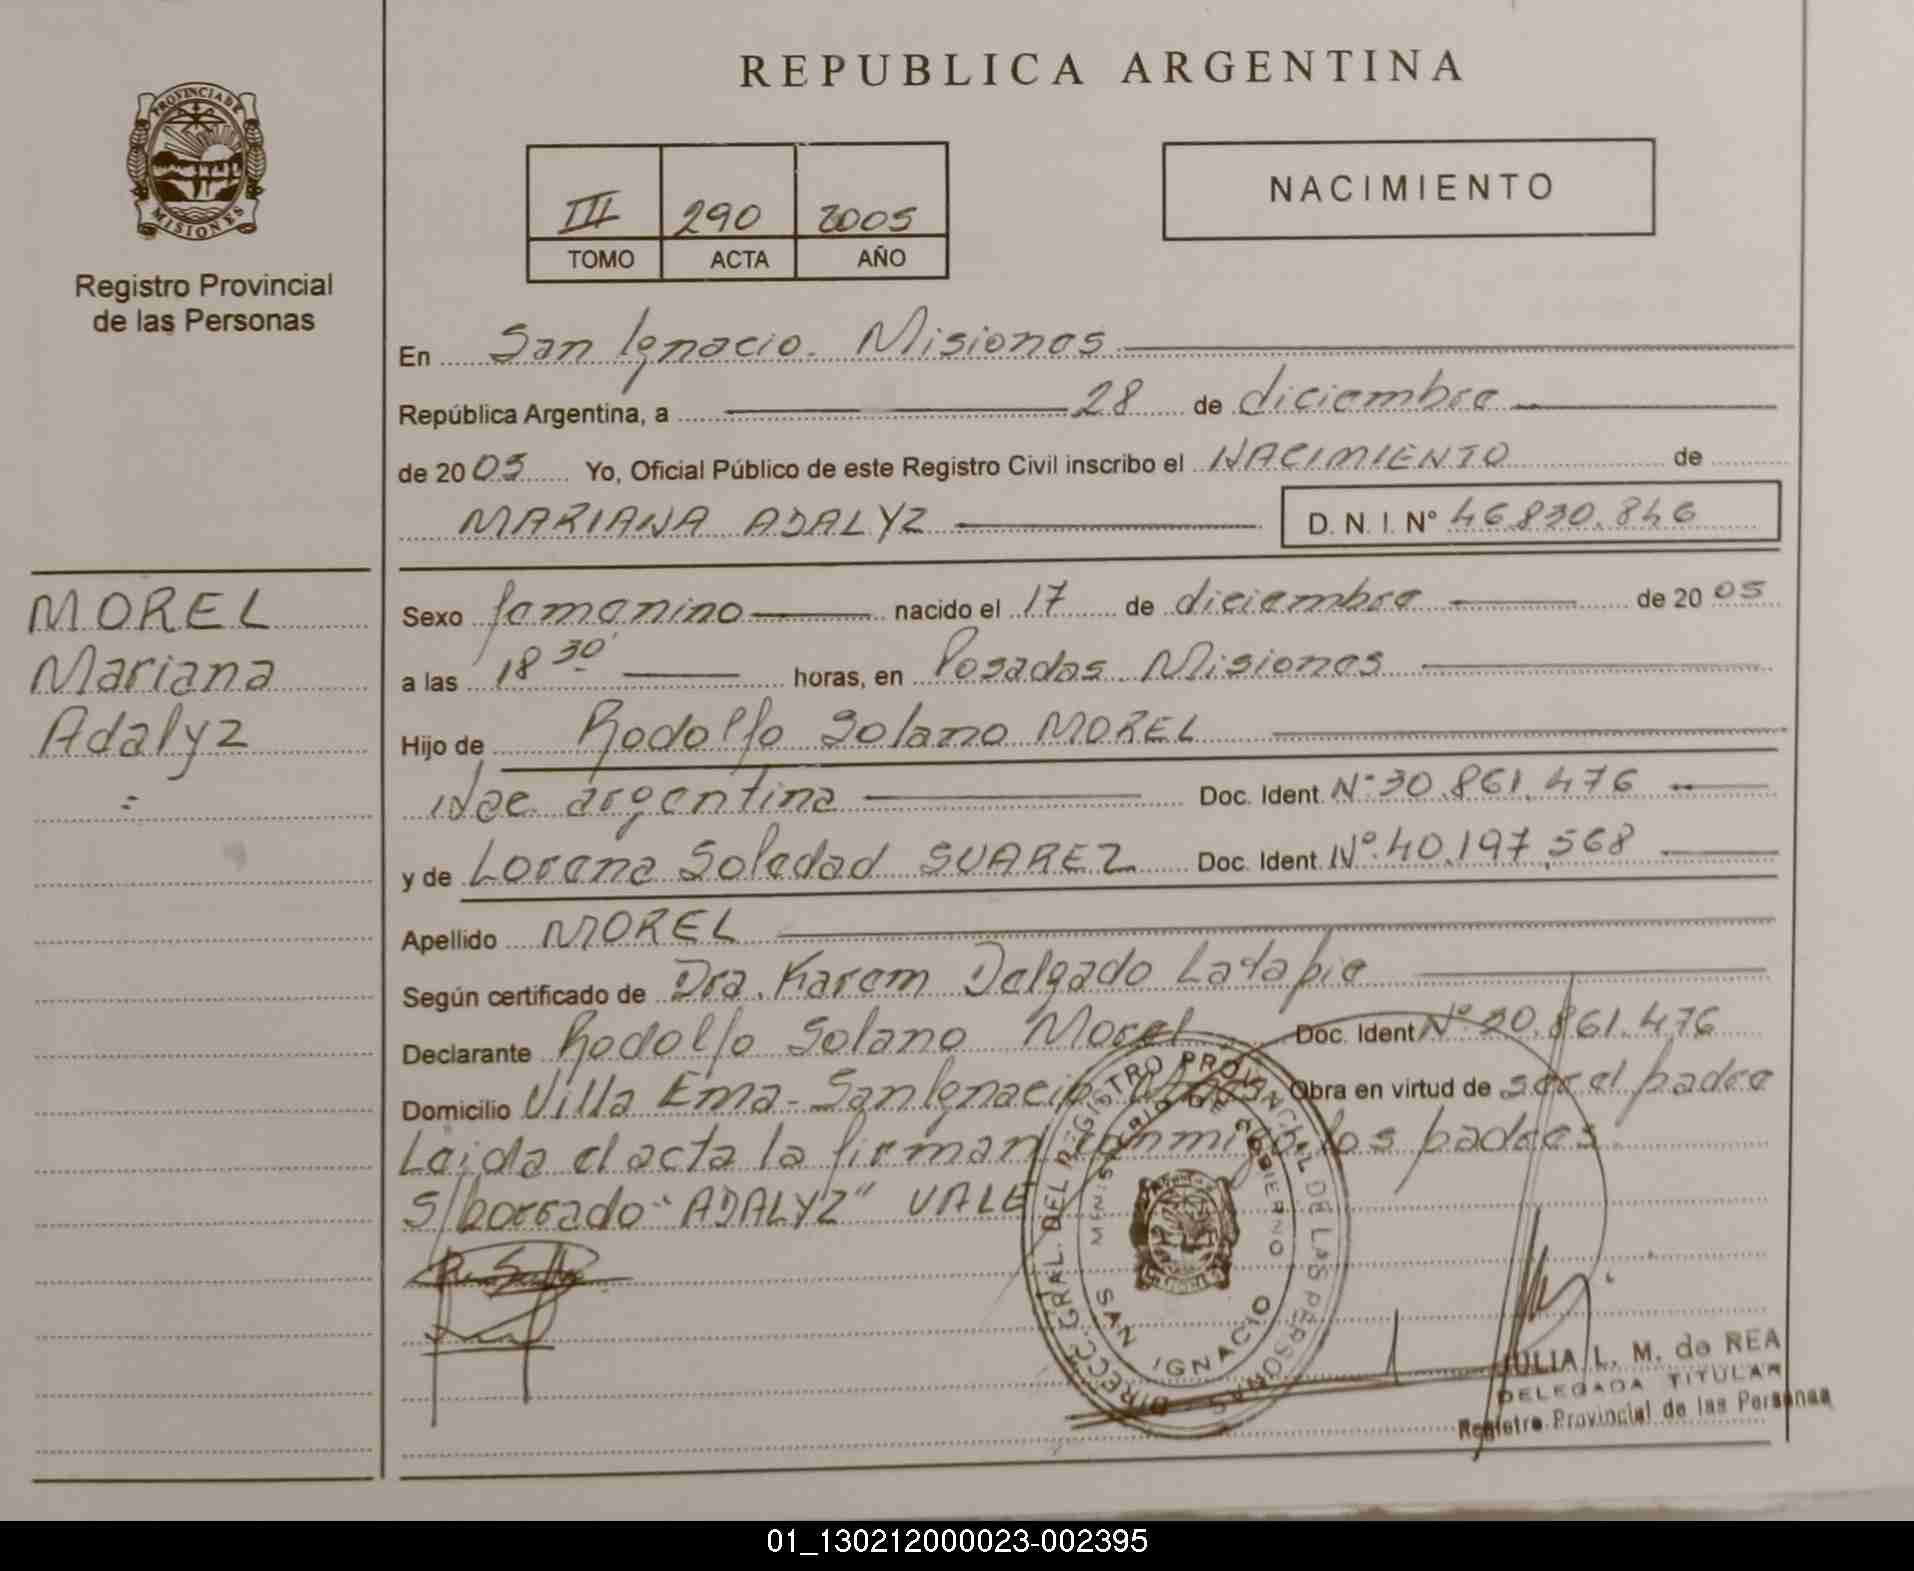 REPUBLICA ARGENTINA
PROVINCIA DE MISIONES
Registro Provincial
de las Personas
NACIMIENTO
III 290 2005
TOMO ACTA AÑO
En San Ignacio. Misiones
República Argentina, a 28 de diciembre
de 2005 Yo, Oficial Público de este Registro Civil inscribo el NACIMIENTO de
MARIANA ADALYZ D. N. I. N° 46.830.846
MOREL
Mariana
Adalyz
=
Sexo femenino nacido el 17 de diciembre de 2005
a las 18 30' horas, en Posadas Misiones
Hijo de Rodolfo Solano MOREL
Nac. argentina Doc. Ident. N° 30.861.476
y de Lorena Soledad SUAREZ Doc. Ident. N° 40.197.568
Apellido MOREL
Según certificado de Dra. Karem Delgado Latapie
Declarante Rodolfo Solano Morel Doc. Ident N° 30.861.476
Domicilio Villa Ema - San Ignacio Obra en virtud de ser el padre
Leida el acta la firman conmigo los padres
S/borrado "ADALYZ" VALE
DIRECC. GRAL. DEL REGISTRO PROVINCIAL DE LAS PERSONAS
MINISTERIO DE GOBIERNO
SAN IGNACIO
JULIA L. M. de REA
DELEGADA TITULAR
Registro Provincial de las Personas
01_130212000023-002395